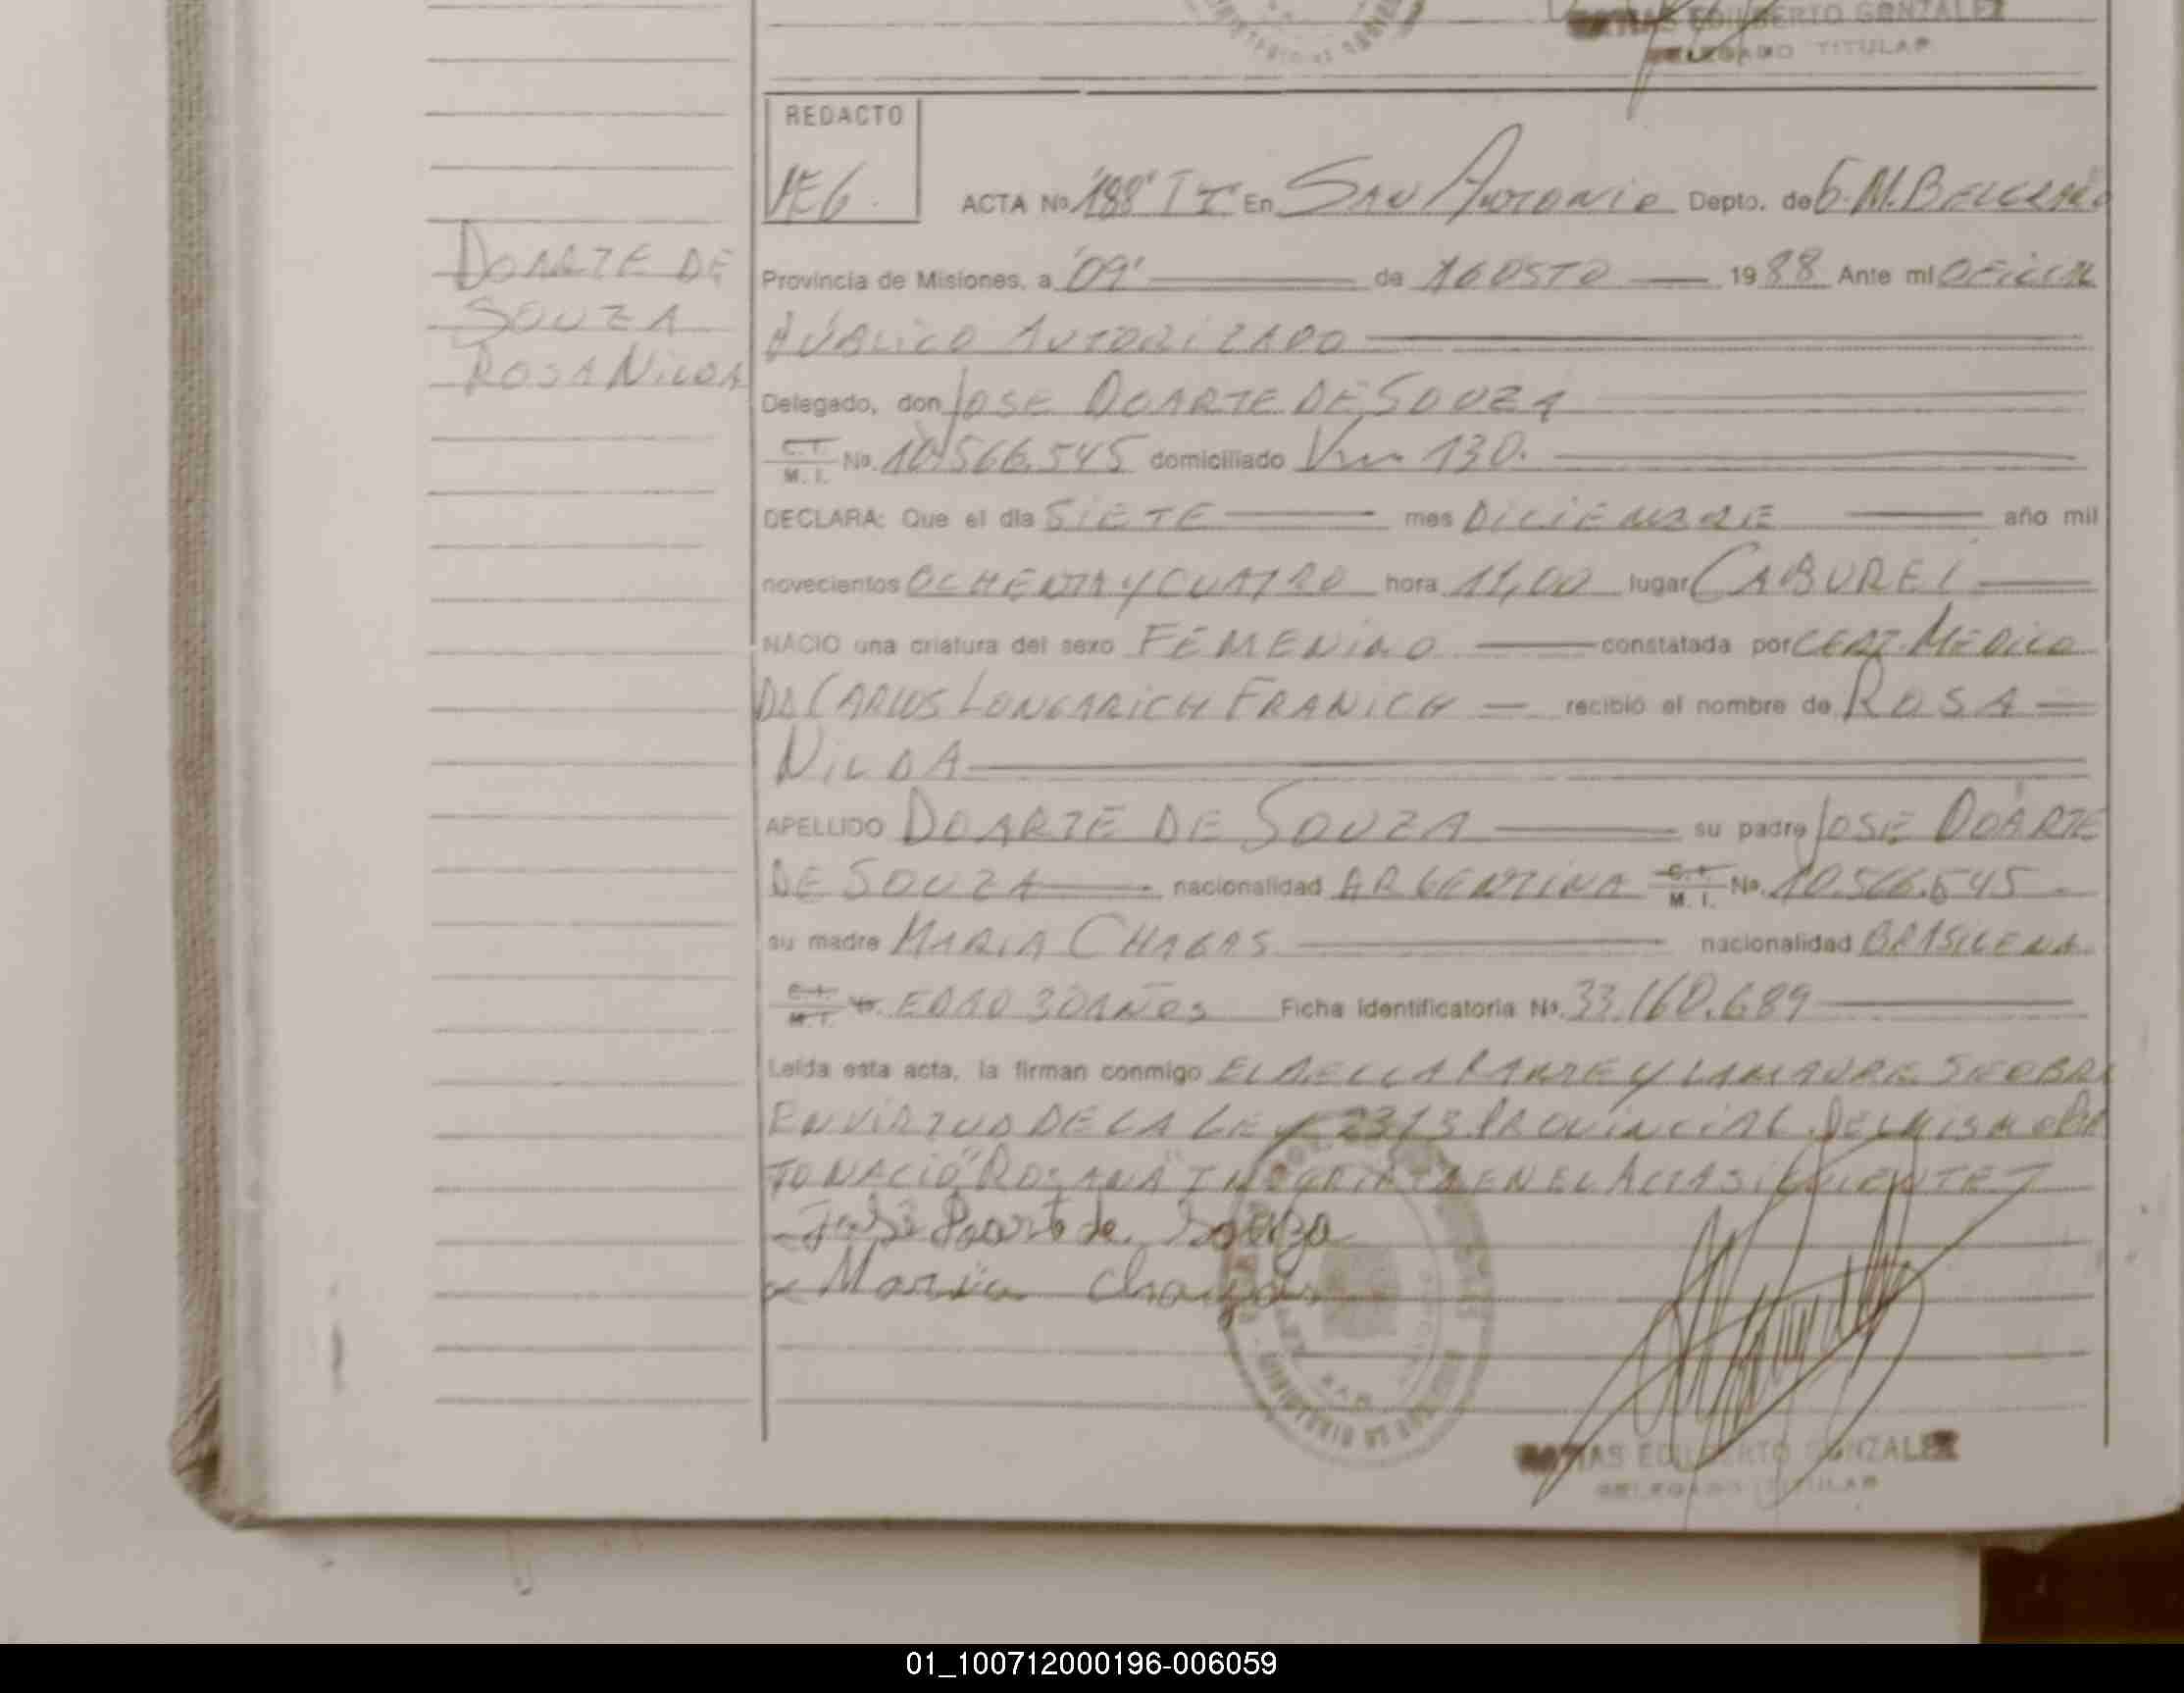 MATIAS EDILBERTO GONZALEZ
DELEGADO TITULAR
REDACTO
ACTA No. "188" TI En SAN ANTONIO Depto. de G.M. BELGRANO
DOARTE DE
SOUZA
ROSA NILDA
Provincia de Misiones, a "09" de AGOSTO 1988 Ante mí OFICIAL
PÚBLICO AUTORIZADO
Delegado, don JOSE DOARTE DE SOUZA
C.I. M. I. No. 10.566.545 domiciliado Km 130.
DECLARA: Que el día SIETE mes DICIEMBRE año mil
novecientos OCHENTA Y CUATRO hora 11,00 lugar CABUREI
NACIO una criatura del sexo FEMENINO constatada por CERT. MEDICO
DR CARLOS LONGARICH FRANICH recibió el nombre de ROSA
NILDA
APELLIDO DOARTE DE SOUZA su padre JOSE DOARTE
DE SOUZA nacionalidad ARGENTINA C.I. M. I. No. 10.566.545
su madre MARIA CHAGAS nacionalidad BRASILENA
C.I. M.I. No. EDAD 30 AÑOS Ficha Identificatoria No. 33.160.689
Leída esta acta, la firman conmigo EL DECLARANTE Y LA MADRE SE OBRA
EN VIRTUD DE LA LEY 2373 PROVINCIAL. DEL MISMO PAR
TO NACIÓ "ROSANA" INSCRIPTA EN EL ACTA SIGUIENTE
José Doarte de Souza
Maria Chagas
MATIAS EDILBERTO GONZALEZ
DELEGADO TITULAR
01_100712000196-006059